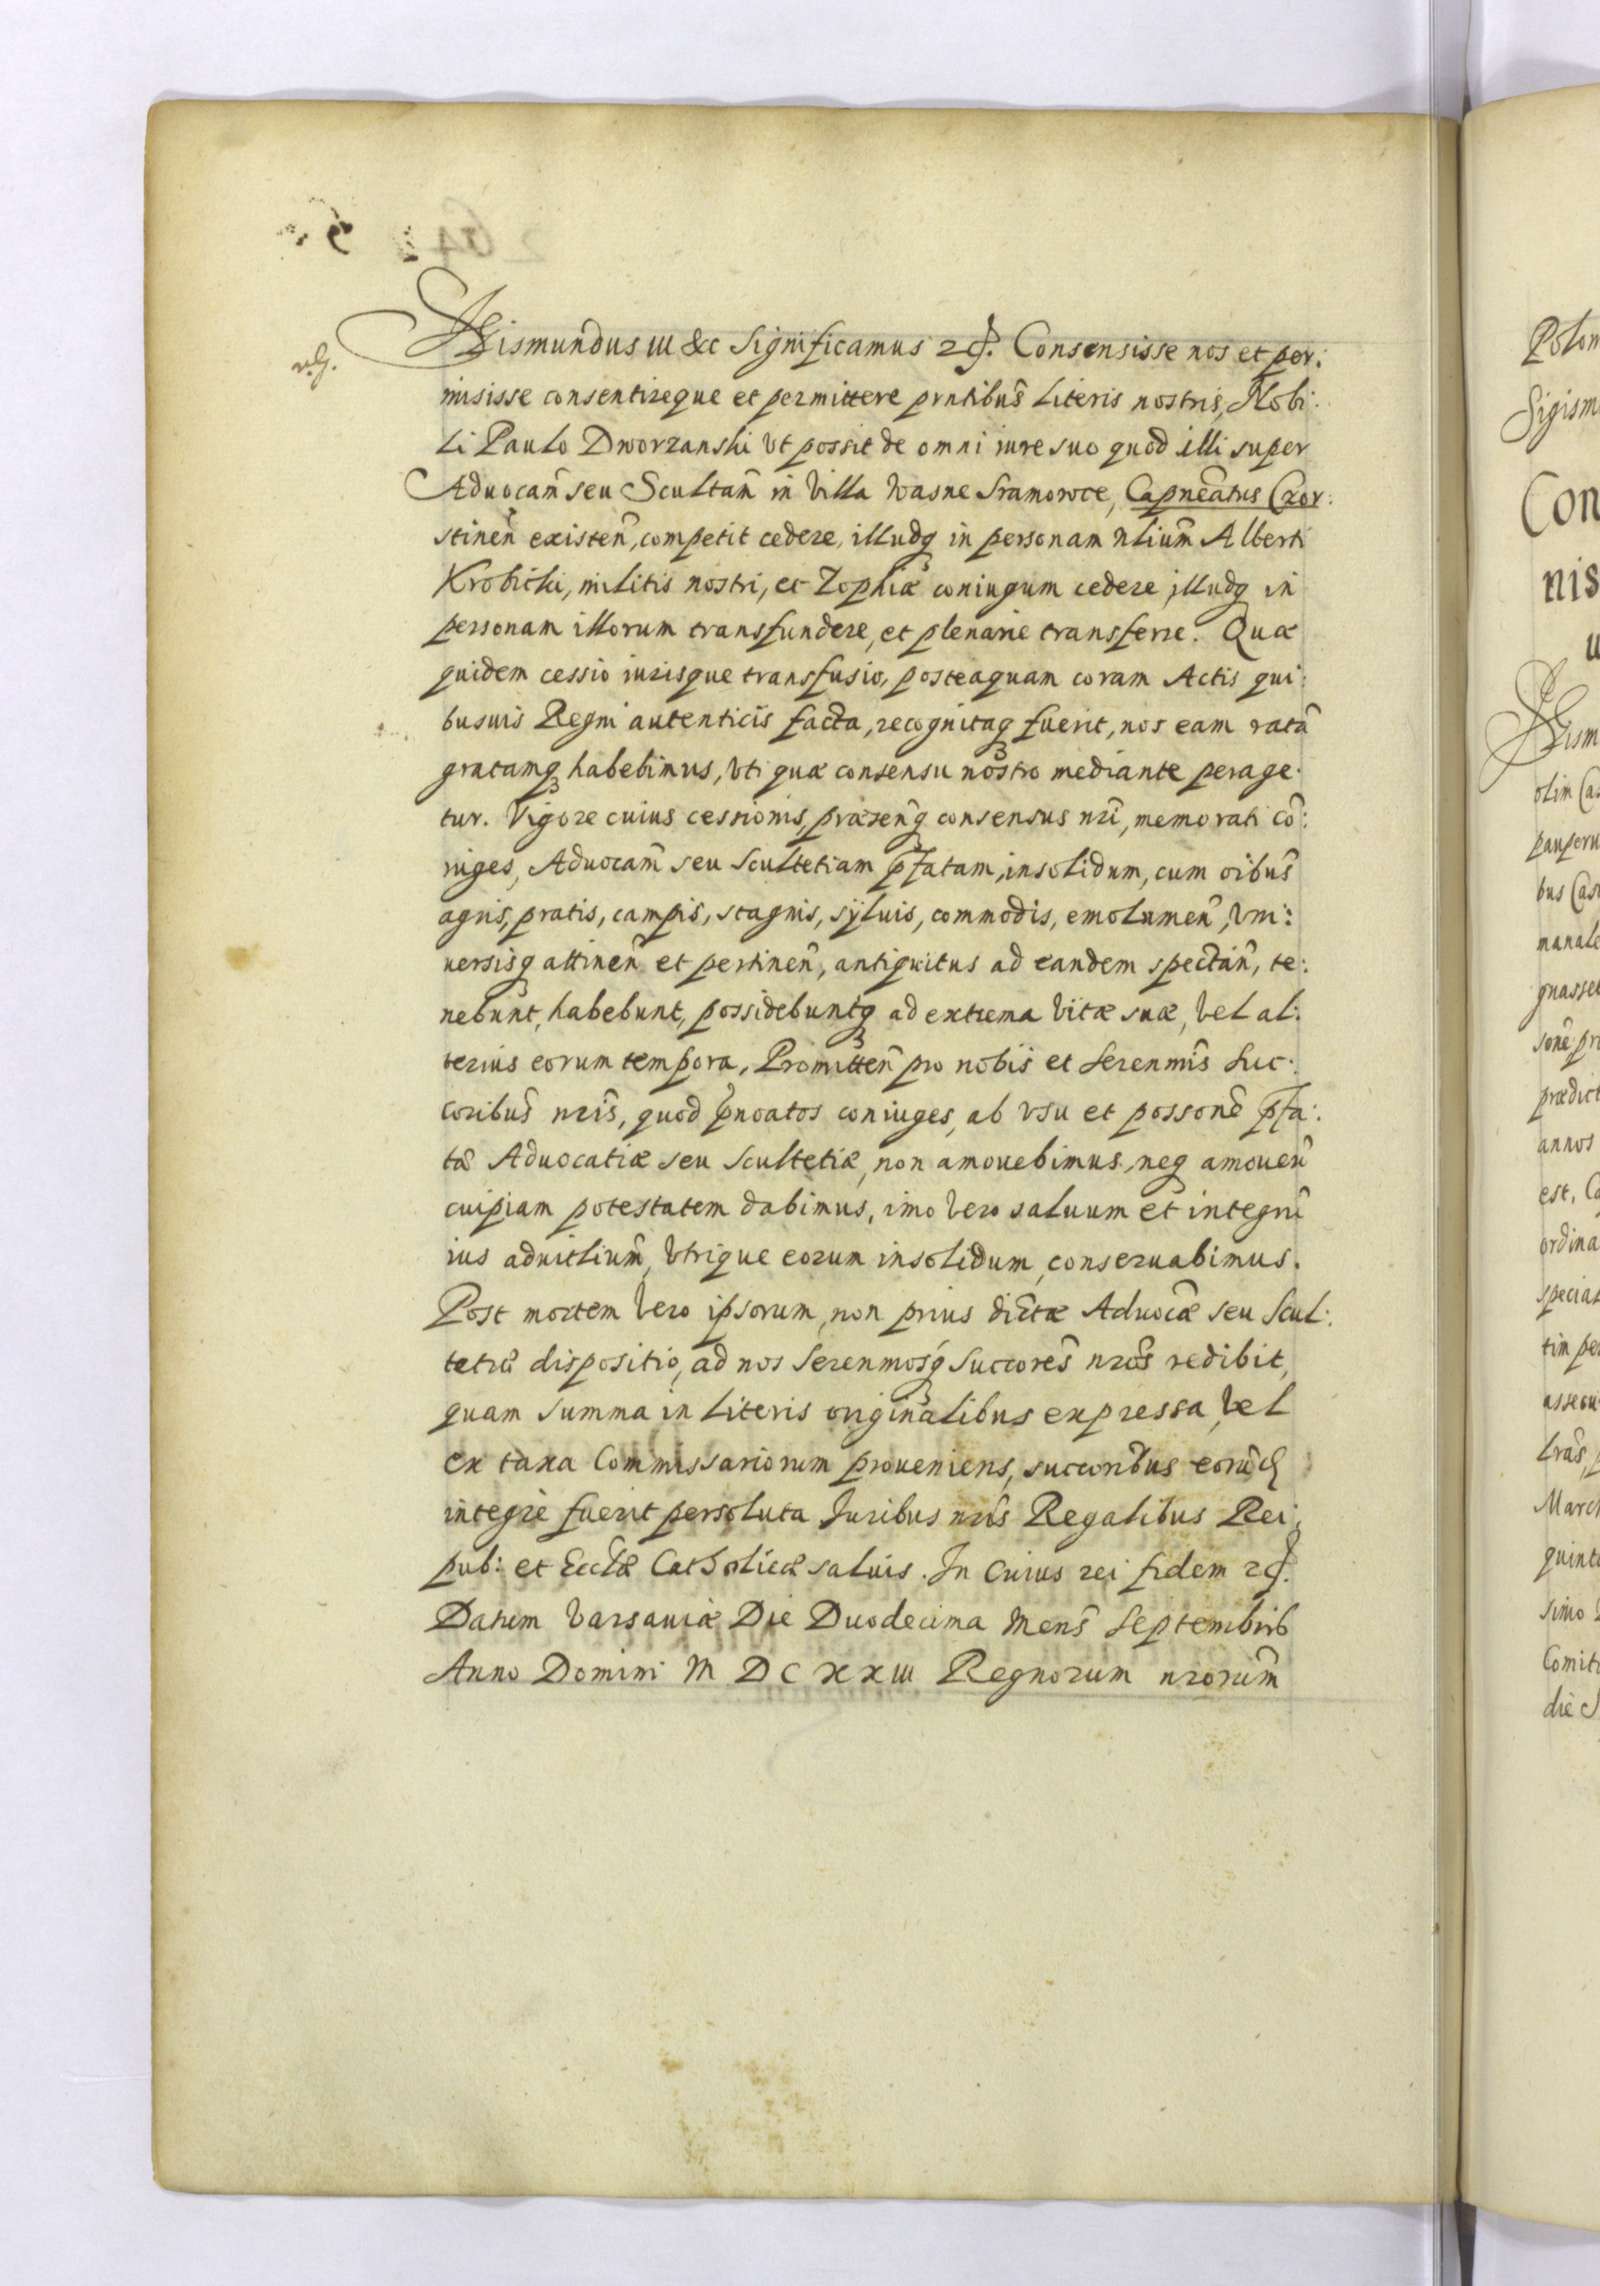 Sigismundus III &c Significamus etc. Consensisse nos et per:
misisse consentireque et permittere pntibus Literis nostris, Nobi:
li Paulo Dworzanski Vt possit de omni iure suo quod illi super
Aduocam̃ seu Scultam̃ in Villa Wasne Sramowce, Capneatus Czor:
stineñ existeñ, competit cedere, illudq in personam nlium̃ Alberti
Krobicki, militis nostri, et Zophiæ coniugum cedere, illudq in
personam illorum transfundere, et plenarie transferre. Quæ
quidem cessio iurisque transfusio, posteaquam coram Actis qui:
busuis Regni autenticis facta, recognitaq fuerit, nos eam ratã
gratamq habebimus, Vti quæ consensu nostro mediante perage:
tur. Vigore cuius cessionis, præsenq̃ consensus nri, memorati cõ:
iuges, Aduocam̃ seu Scultetiam pfatam, insolidum, cum oibus̃
agris, pratis, campis, stagnis, syluis, commodis, emolumeñ, Vni:
uersisq attineñ et pertineñ, antiquitus ad eandem spectañ, te:
nebunt, habebunt, possidebuntq ad extrema Vitæ suæ, Vel al:
terius eorum tempora, Promitteñ pro nobis et Serenmis̃ Suc:
coribus̃ nris̃, quod pnoatos coniuges, ab Vsu et possonẽ pfa:
tæ Aduocatiæ seu Scultetiæ, non amouebimus, neq amoueñ
cuipiam potestatem dabimus, imo Vero saluum et integrũ
ius aduitlium̃, Vtrique eorum insolidum, conseruabimus.
Post mortem Vero ipsorum, non prius dictæ Aduocæ̃ seu Scul:
tetiæ dispositio, ad nos Serenmosq̃ Succores̃ nros̃ redibit,
quam Summa in Literis originalibus expressa, Vel
ex taxa Commissariorum proueniens, succoribus eorũd
integrè fuerit persoluta Iuribus nris̃ Regalibus Rei:
pub: et Ecclæ̃ Catholicæ saluis. In Cuius rei fidem etc.
Datum Varsauiæ Die Duodecima Mens̃ Septembris
Anno Domini M DC XXIII Regnorum nrorum̃
Polon
Sigism
Con
nis
olim Ca
pauperu
bus Cas
manale
gnasset
sonẽ pr
prædict
annos
est, Co
ordina
special
tim per
assecu
March
quint
simo
Comiti
die S